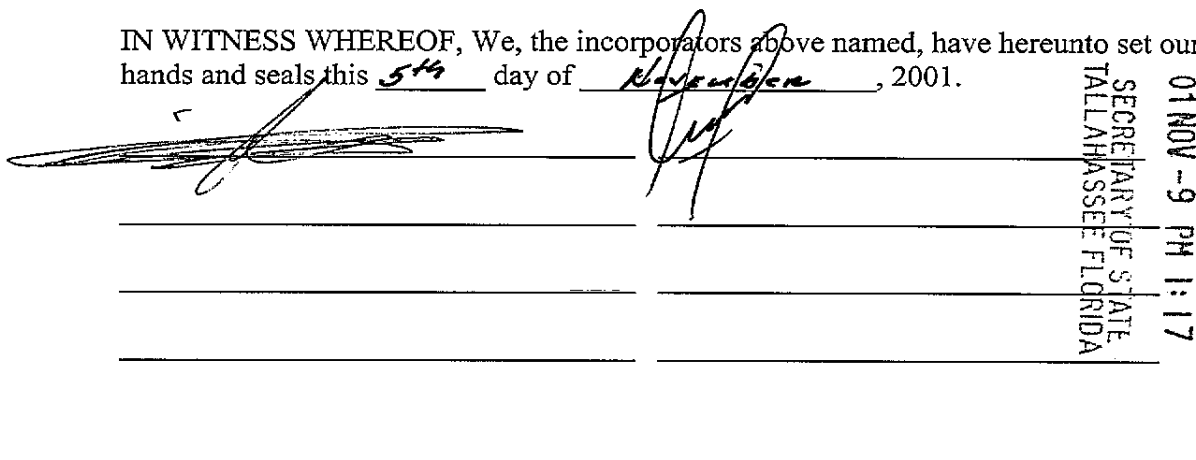 IN WITNESS WHEREOF, We, the incorporators above named, have hereunto set our
hands and seals this 5th day of November, 2001.
01 NOV -9 PM 1:17
SECRETARY OF STATE
TALLAHASSEE FLORIDA